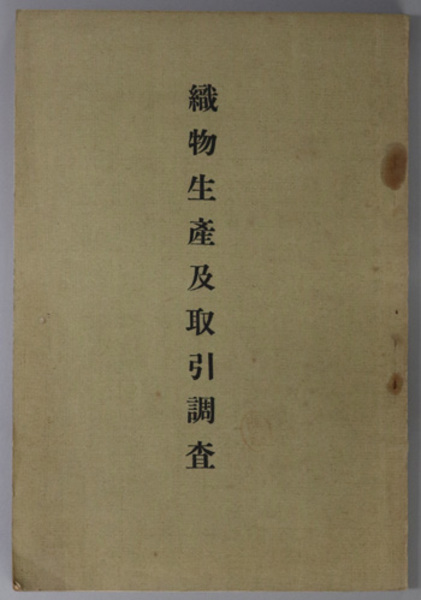 織物生產及取引調査